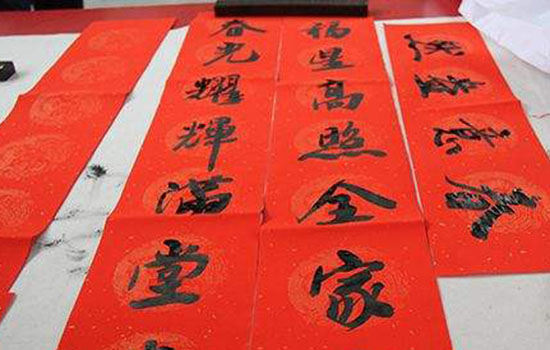 春意盎然
福星高照全家
春光耀輝滿堂